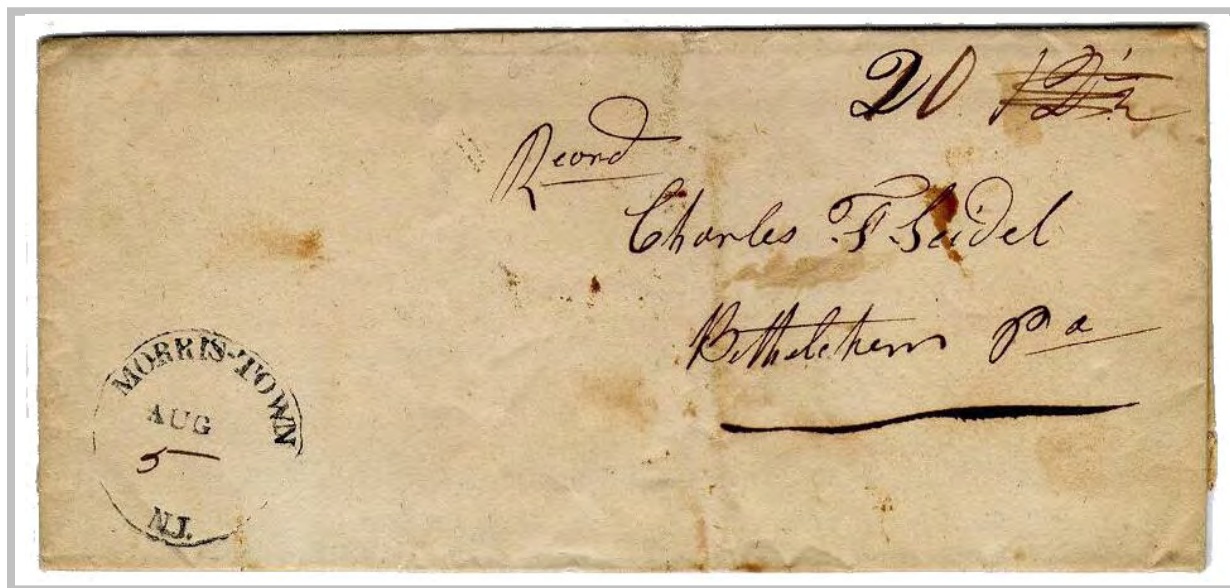 20 12½
Revd
Charles F. Seidel
Bethelehem Pa
MORRIS-TOWN
AUG
5
N.J.